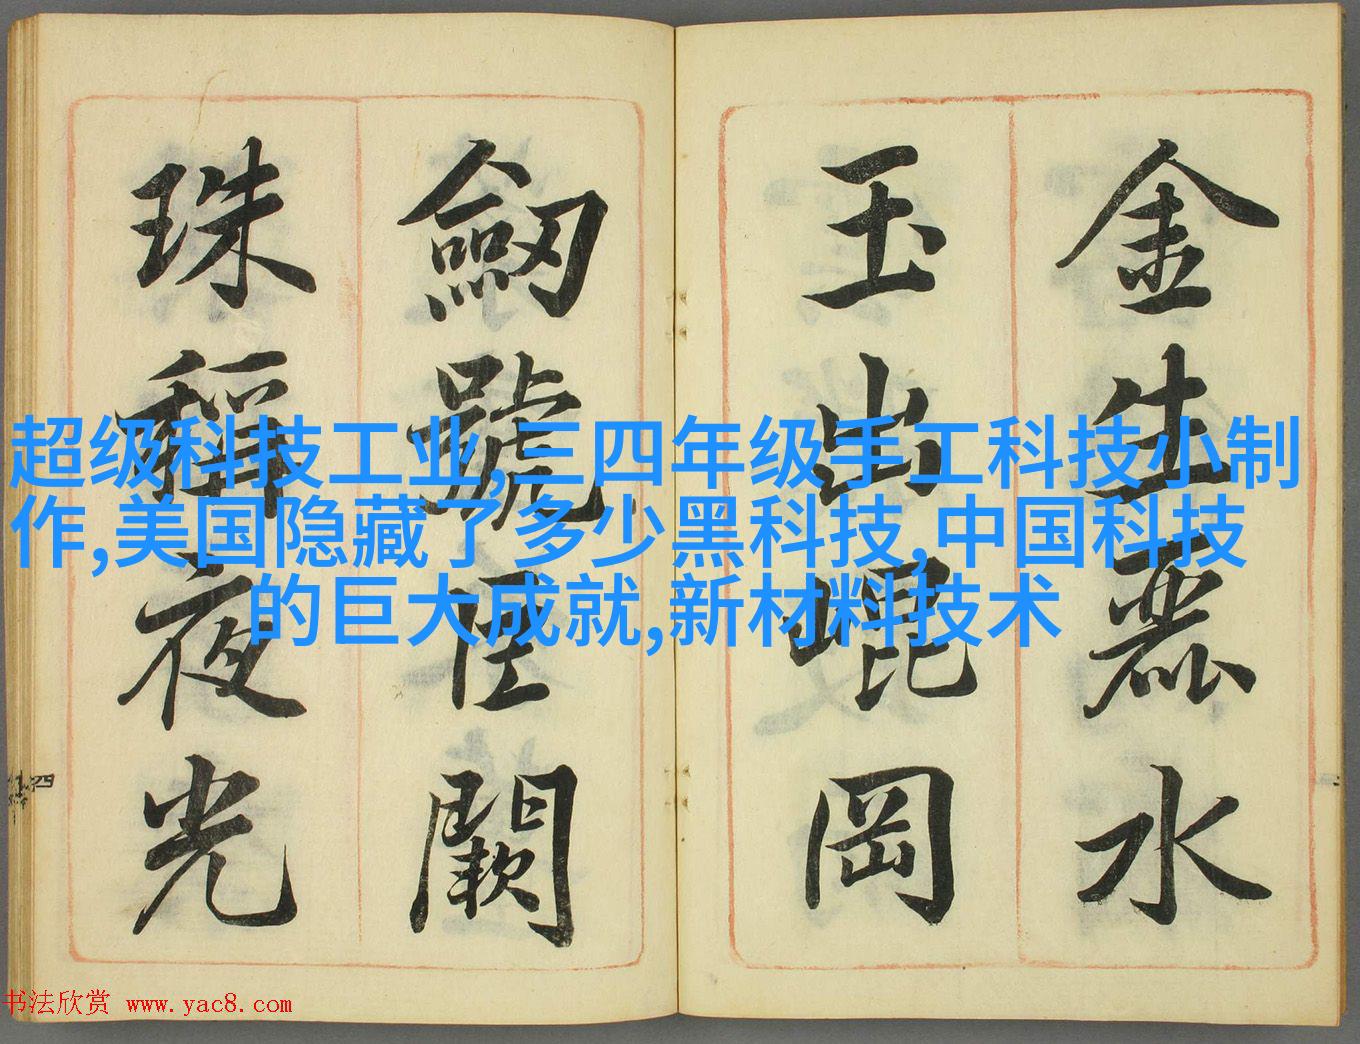 金生麗水
玉出崐岡
劒號巨闕
珠稱夜光
超级科技工业,三四年级手工科技小制
作,美国隐藏了多少黑科技,中国科技
的巨大成就,新材料技术
书法欣赏 www.yac8.com